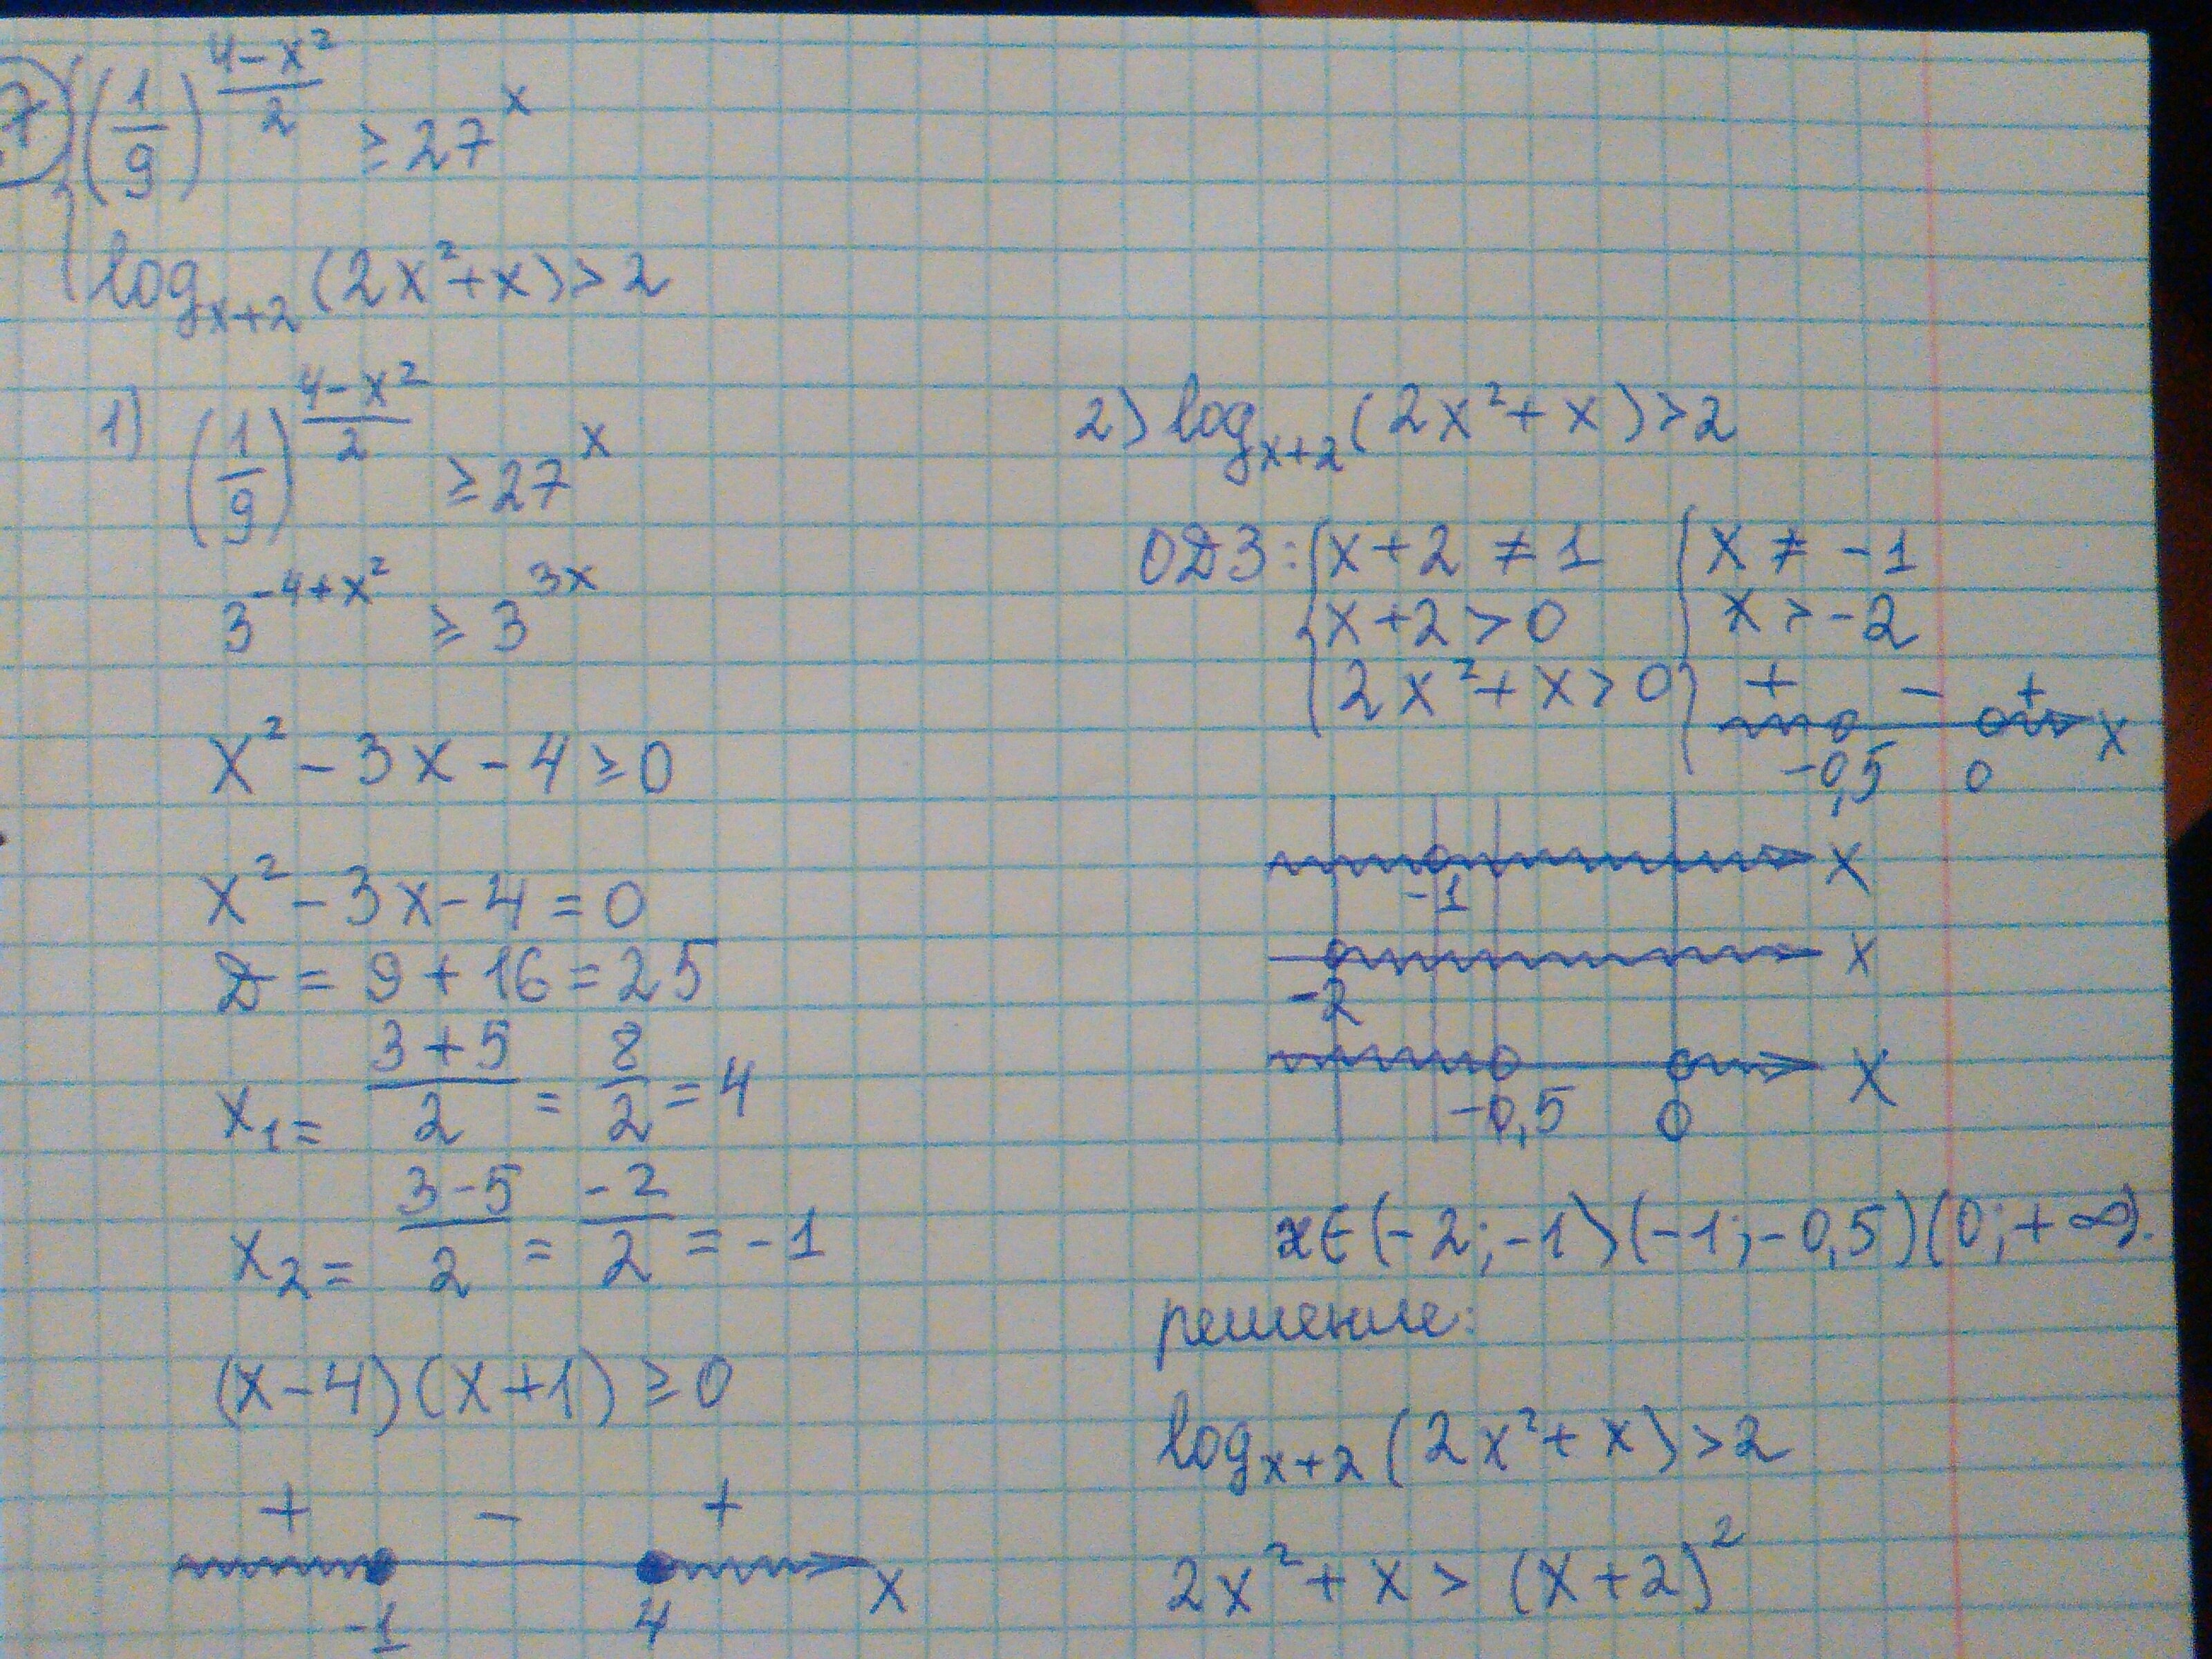 7
(1/9)^((4-x²)/2) ≥ 27^x
log_{x+2}(2x²+x)>2
1) (1/9)^((4-x²)/2) ≥ 27^x
3^(-4+x²) ≥ 3^(3x)
x² - 3x - 4 ≥ 0
x² - 3x - 4 = 0
D = 9 + 16 = 25
x₁ = (3+5)/2 = 8/2 = 4
x₂ = (3-5)/2 = -2/2 = -1
(x-4)(x+1) ≥ 0
+ - +
-1 4 x
2) log_{x+2}(2x²+x)>2
ОДЗ: x+2 ≠ 1 x ≠ -1
x+2 > 0 x > -2
2x²+x>0 + - +
-0,5 0 x
-1 x
-2 x
-0,5 0 x
x∈(-2;-1)(-1;-0,5)(0;+∞).
решение:
log_{x+2}(2x²+x)>2
2x²+x > (x+2)²